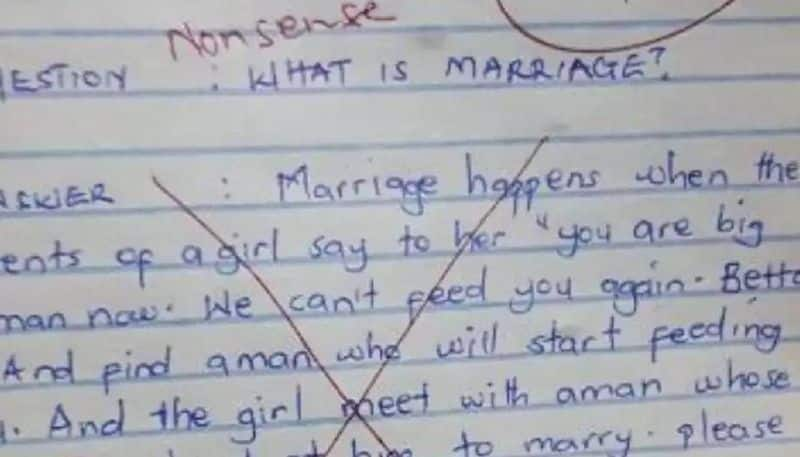 Nonsense
ESTION : WHAT IS MARRIAGE?
: Marriage happens when the
ents of a girl say to her "you are big
man now. We can't feed you again. Bette
And find a man who will start feeding
. And the girl meet with a man whose
him to marry. please